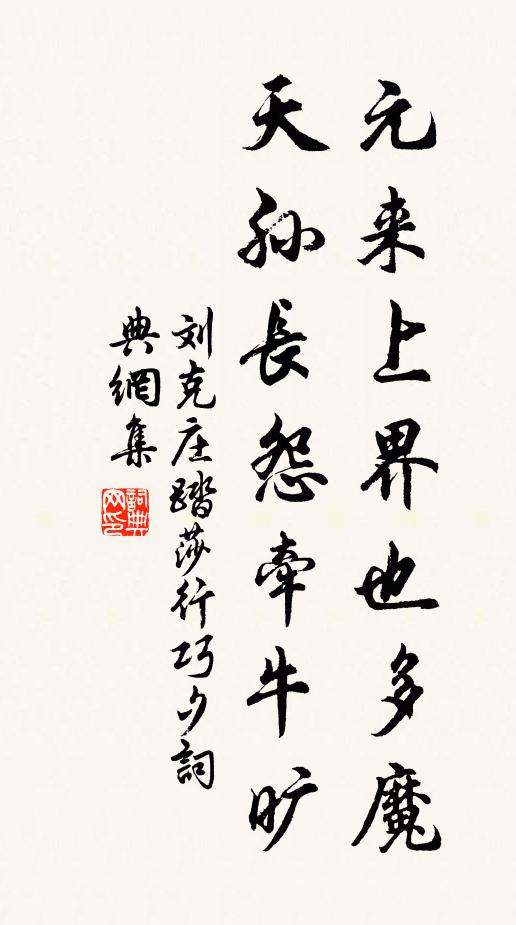 元来上界也多魔
天孙長怨牽牛旷
刘克庄踏莎行巧夕詞
典網集
詞典网印